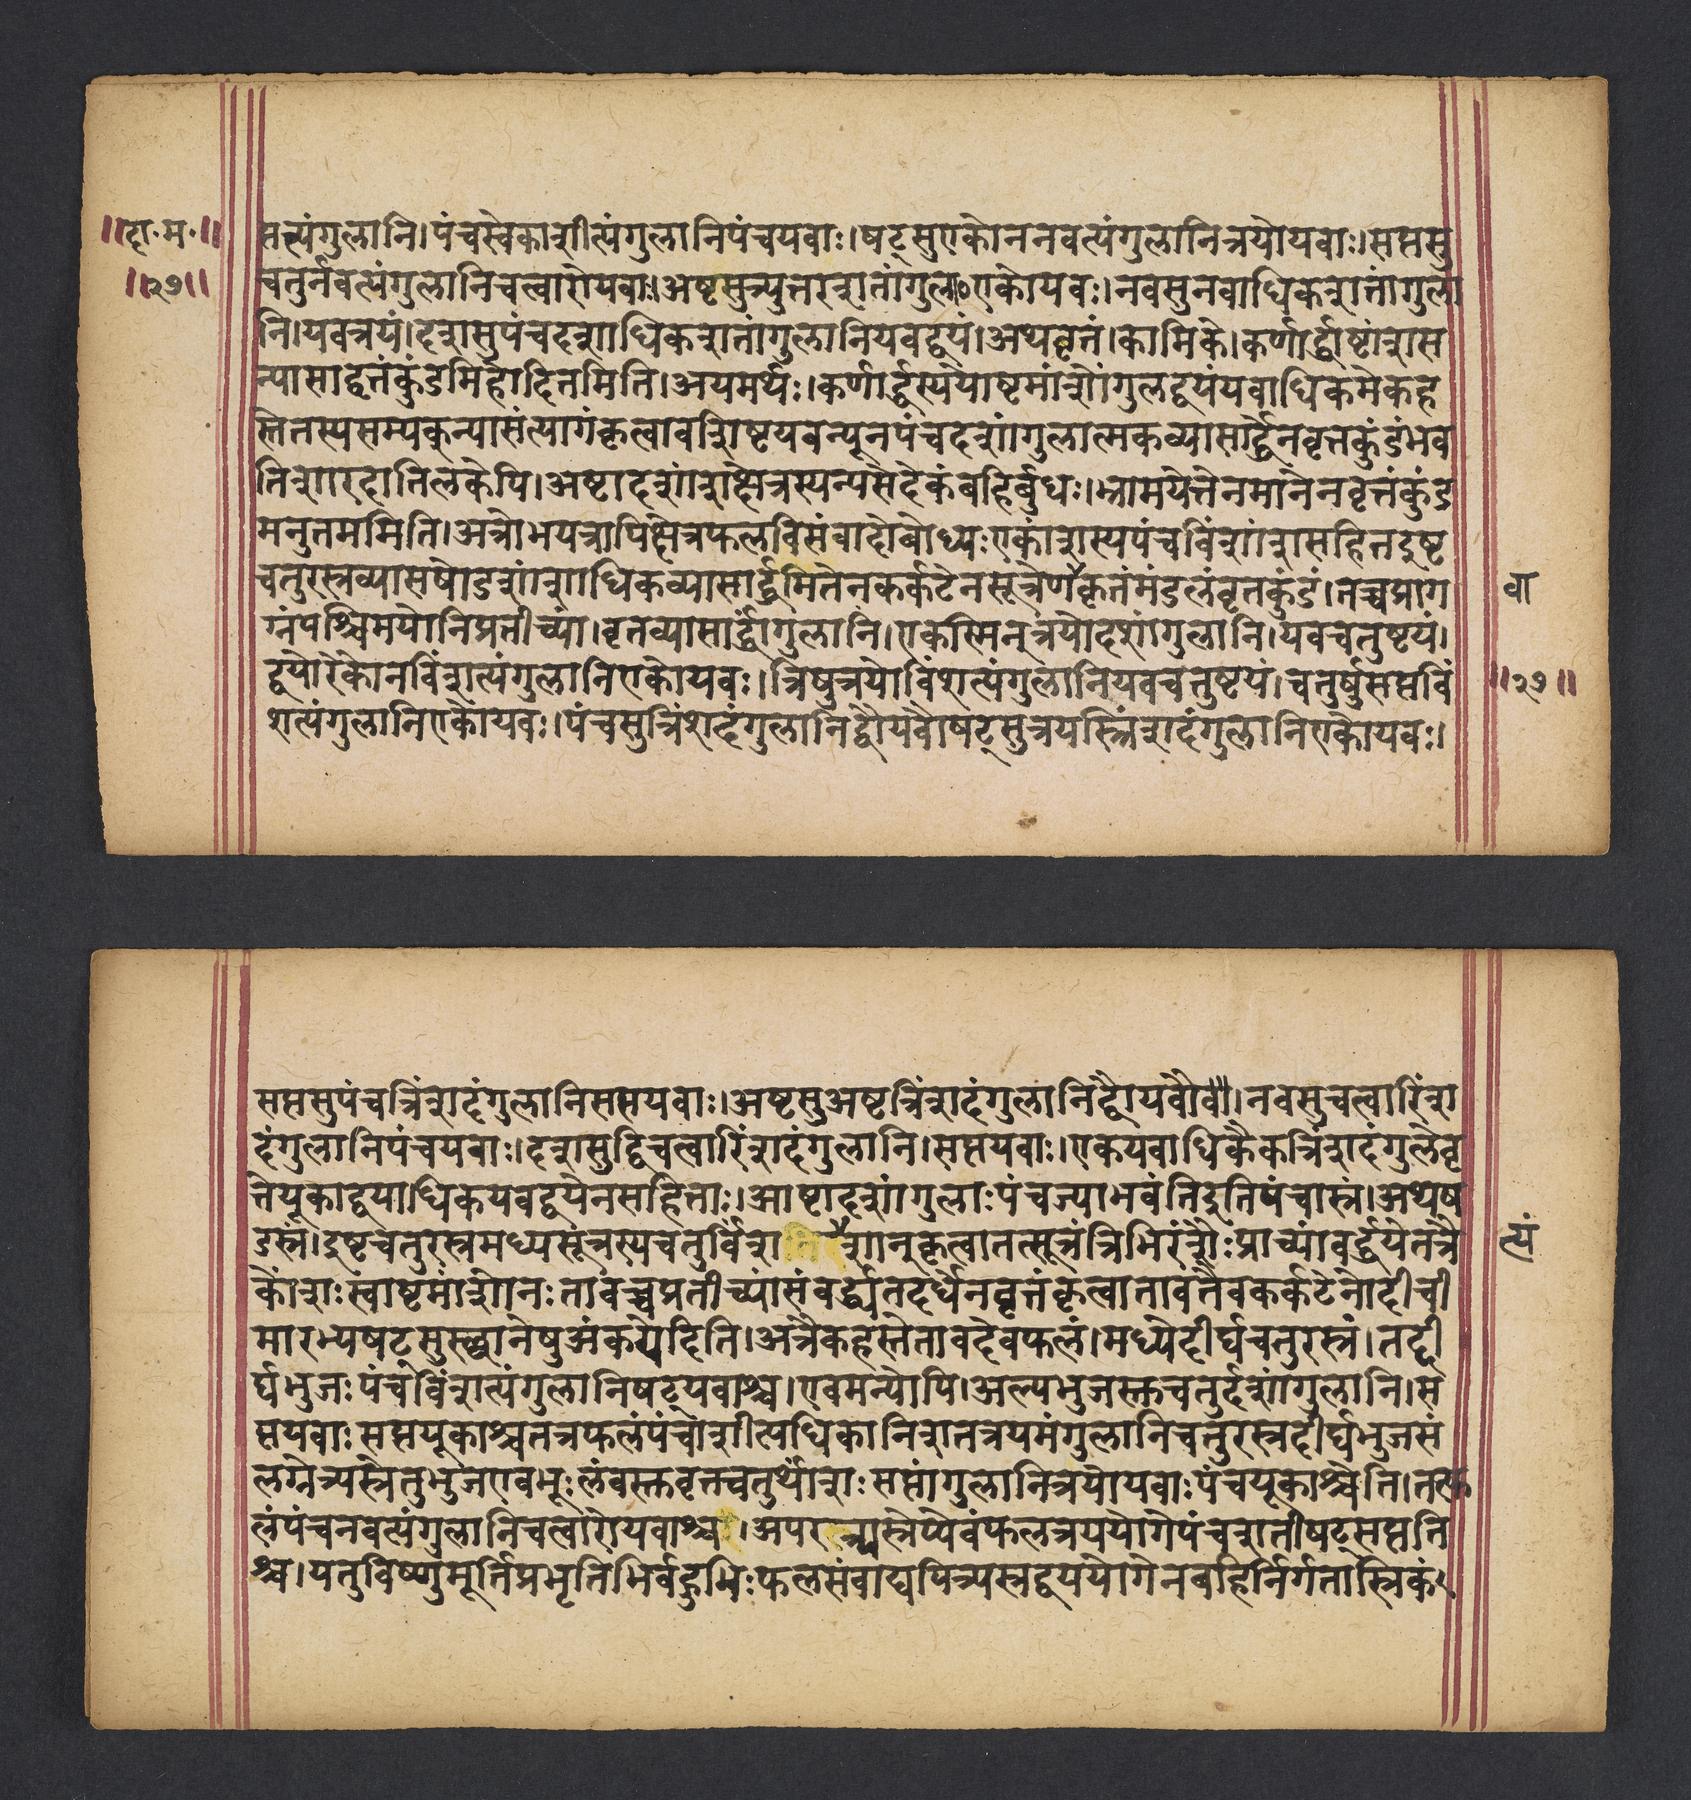 ॥दा॰म॰॥
॥२७॥
प्तत्यंगुलानि।पंचस्वेकाशीत्यंगुलानिपंचयवाः।षट्सुएकोननवत्यंगुलानित्रयोयवाः।सप्तसु
चतुर्नवत्यंगुलानिचत्वारोयवाः।अष्टसुत्र्युत्तरशतांगुला०एकोयवः।नवसुनवाधिकशतांगुला
नि।यवत्रयं।दशसुपंचदशाधिकशतांगुलानियवद्वयं।अथवृत्तं।कामिके।कर्णार्द्धाष्टांशस
न्यासाद्वृत्तंकुंडमिहोदितमिति।अयमर्थः।कर्णार्द्धस्ययोष्टमांशोंगुलद्वयंयवाधिकमेकह
स्तेतस्यसम्यकून्यासंत्यागंकृत्वावशिष्टयवन्यूनपंचदशांगुलात्मकव्यासार्द्धेनवृत्तकुंडंभव
तिशारदातिलकेपि।अष्टादशांशक्षेत्रस्यन्यसेदेकंबहिर्बुधः।भ्रामयेत्तेनमानेनवृत्तंकुंड
मनुत्तममिति।अत्रोभयत्रापिक्षेत्रफलविसंवादोबोध्यःएकांशस्यपंचविंशांशसहितदुष्ट
चतुरस्रव्यासषोडशांशाधिकव्यासार्द्धमितेनकर्कटेनसूत्रेणकृतंमंडलंवृत्तकुंडं।तच्चप्राग
वा
ग्नंपश्चिमयोनिप्रतीच्यां।वृत्तव्यासार्द्धांगुलानि।एकस्मिन्त्रयोदशांगुलानि।यवचतुष्टयं।
द्वयोरेकोनविंशत्यंगुलानिएकोयवः।त्रिषुत्रयोविंशत्यंगुलानियवचतुष्टयं।चतुर्षुसप्तविं
॥२७॥
शत्यंगुलानिएकोयवः।पंचसुत्रिंशदंगुलानिद्वौयवौषट्सुत्रयस्त्रिंशदंगुलानिएकोयवः।
सप्तसुपंचत्रिंशदंगुलानिसप्तयवाः।अष्टसुअष्टत्रिंशदंगुलानिद्वौयवौवौ।नवसुचत्वारिंश
दंगुलानिपंचयवाः।दशसुद्विचत्वारिंशदंगुलानि।सप्तयवाः।एकयवाधिकैकत्रिंशदंगुलेवृ
त्तेयूकाद्वयाधिकयवद्वयेनसहिताः।आष्टादशांगुलाःपंचज्याभवंतिदुतिपंचास्रं।अथष
डस्रं।दुष्टचतुरस्रमध्यसूत्रस्यचतुर्विंशतिशानुकृत्वातत्सूत्रंत्रिभिरंशैःप्राच्यांवर्द्धयेतत्रै
त्यं
कोंशःस्वाष्टमांशोनःतावच्चप्रतीच्यांसंवर्द्ध्यतदर्धेनवृत्तंकृत्वातावतैवकर्कटेनोदीची
मारभ्यषटसुस्छानेषुअंकयेदिति।अत्रैकहस्तेतावदेवफलं।मध्येदीर्घचतुरस्रं।तद्दी
र्घभुजःपंचविंशत्यंगुलानिषट्यवाश्च।एवमन्योपि।अल्पभुजस्तचतुर्दशांगुलानि।स
प्तयवाःसप्तयूकाश्चतत्रफलंपंचाशीत्यधिकानिशतत्रयमंगुलानिचतुरस्रदीर्घभुजसं
लग्नेत्र्यस्रेतुभुजएवभूःलंवस्तवृत्तचतुर्थांशःसप्तांगुलानित्रयोयवाःपंचयूकाश्चेति।तत्फ
लंपंचनवत्यंगुलानिचत्वारोयवाश्च।अपरत्र्यास्रेप्येवंफलत्रययोगेपंचशतीषट्सप्तति
श्च।यतुविष्णुमूर्तिप्रभृतिभिर्बहुभिःफलसंवाद्यपित्र्यस्रद्वययोगेनबहिर्निर्गतास्रिकं